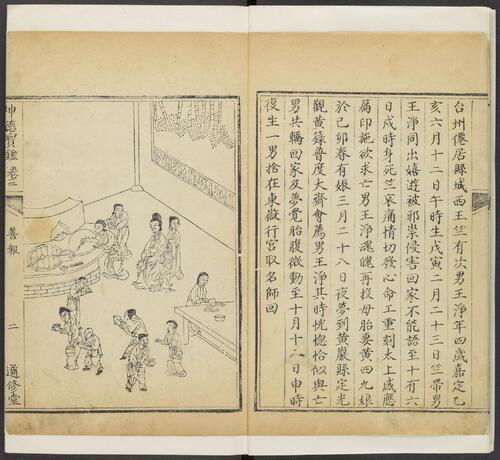 台州僊居縣城西王竺有次男王淨年四歲嘉定乙
亥六月十二日午時生戊寅二月二十三日竺帶男
王淨同出嬉遊被邪祟侵害回家不能語至十有六
日戌時身死竺哀痛情切發心命工重刻太上感應
篇印施欲求亡男王淨魂魄再投母胎妻黃四九娘
於己卯春有娠三月二十八日夜夢到黃巖縣定光
觀黃籙普度大齋會薦男王淨其時恍惚恰似與亡
男共轎回家及夢覺胎腹微動至十月十一日申時
復生一男捨在東嶽行宮取名師回
坤德寶鑑 卷三
善報
二
適修堂